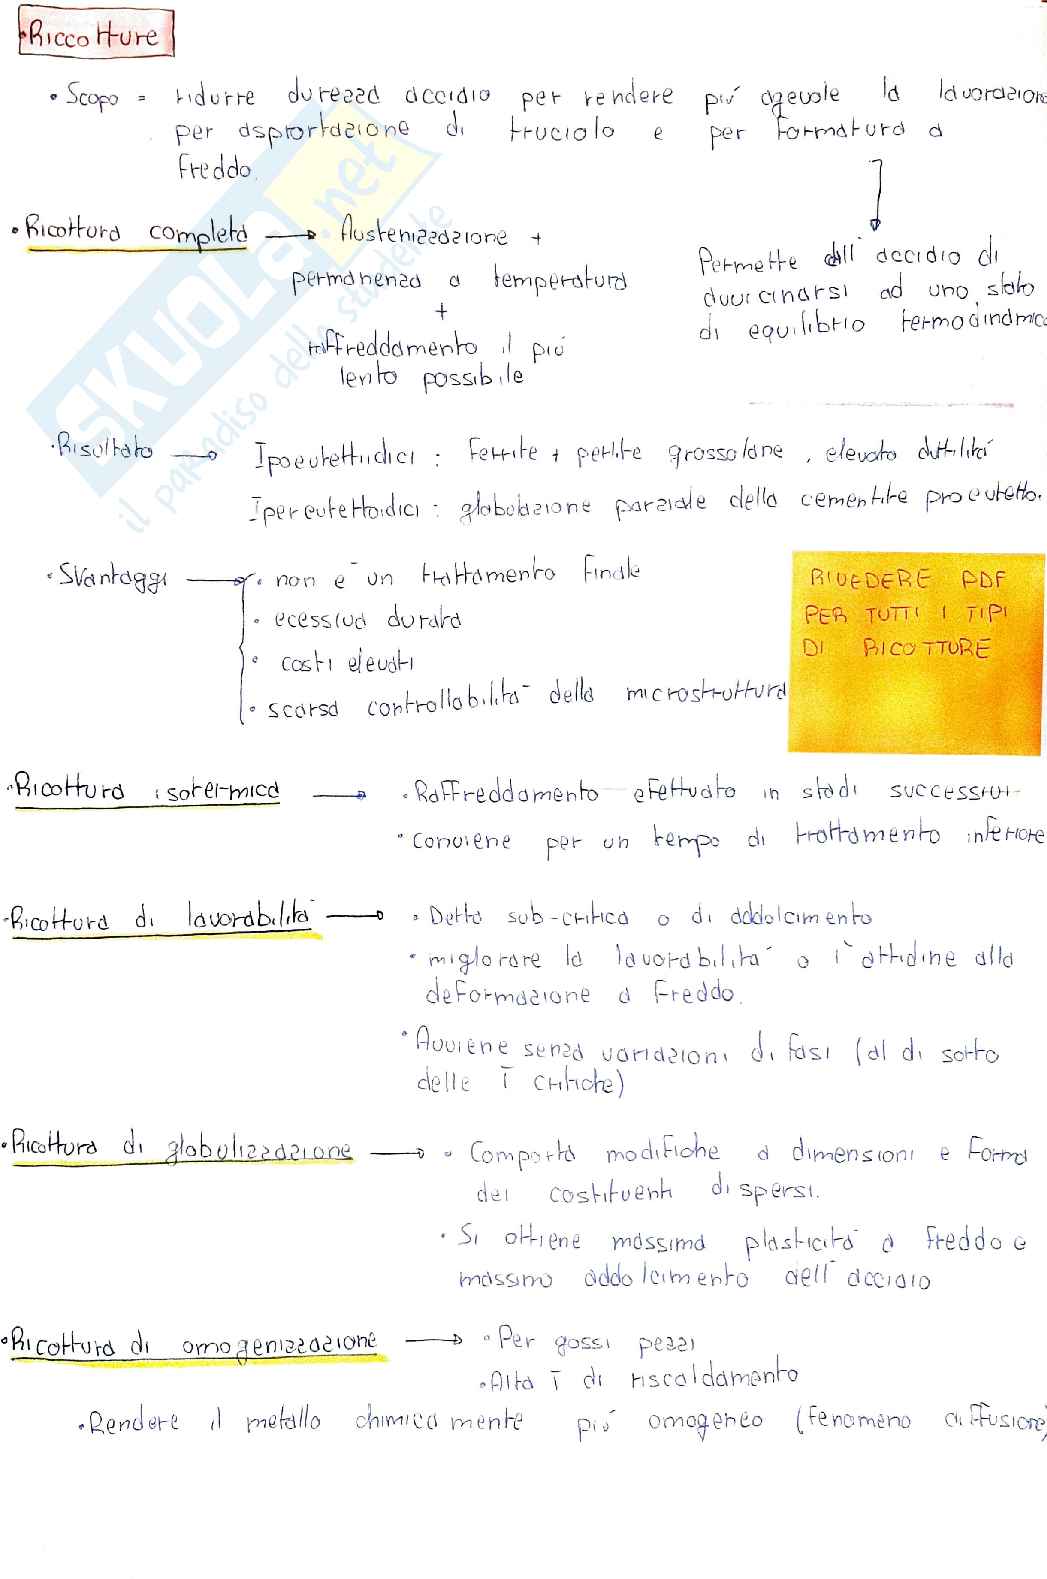 • Riccotture
• Scopo = ridurre durezza acciaio per rendere più agevole la lavorazione
per asportazione di truciolo e per formatura a
freddo.
• Ricottura completa → Austenizzazione +
permanenza a temperatura
+
raffreddamento il più
lento possibile
Permette all'acciaio di
avvicinarsi ad uno stato
di equilibrio termodinamico
• Risultato → Ipoeutettoidici : Ferrite + perlite grossolane, elevata duttilità
Ipereutettoidici : globulazione parziale della cementite proeutetto.
• Svantaggi → • non è un trattamento finale
• ecessiva durata
• costi elevati
• scarsa controllabilità della microstruttura
RIVEDERE PDF
PER TUTTI I TIPI
DI RICOTTURE
• Ricottura isotermica → • Raffreddamento efettuato in stadi successivi
• conviene per un tempo di trattamento inferiore
• Ricottura di lavorabilità → • Detta sub-critica o di addolcimento
• migliorare la lavorabilità o l'attidine alla
deformazione a freddo.
• Avviene senza variazioni di fasi (al di sotto
delle T critiche)
• Ricottura di globulizzazione → • Comporta modifiche a dimensioni e forma
dei costituenti dispersi.
• Si ottiene massima plasticità a freddo e
massimo addolcimento dell'acciaio
• Ricottura di omogenizzazione → • Per gossi pezzi
• Alta T di riscaldamento
• Rendere il metallo chimicamente più omogeneo (fenomeno diffusione)
SKUOLA.net
il paradiso dello studente